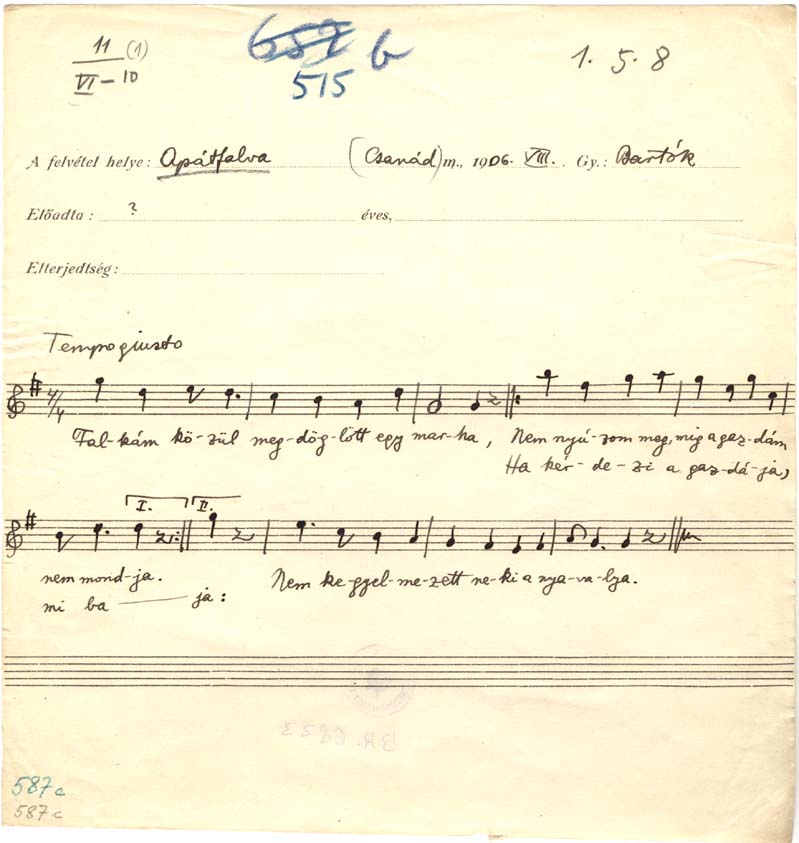 11 (1)
VI-10
652 b
515
1. 5. 8
A felvétel helye: Apátfalva (Csanád) m., 1906. VIII. Gy.: Bartók
Előadta: ? éves,
Elterjedtség:
Tempo giusto
4/4
Fal-kám kö-zül meg-dög-lött egy mar-ha, Nem nyú-zom meg, míg a gaz-dám
Ha kér-de-zi a gaz-dá-ja,
I. II.
nem mond-ja. Nem ke-gyel-me-zett ne-ki a nya-va-lya.
mi ba — ja:
587c
587c